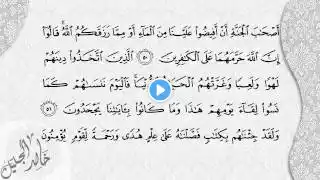 أَصْحَٰبَ ٱلْجَنَّةِ أَنْ أَفِيضُوا۟ عَلَيْنَا مِنَ ٱلْمَآءِ أَوْ مِمَّا رَزَقَكُمُ ٱللَّهُ قَالُوٓا۟
إِنَّ ٱللَّهَ حَرَّمَهُمَا عَلَى ٱلْكَٰفِرِينَ ٥٠ ٱلَّذِينَ ٱتَّخَذُوا۟ دِينَهُمْ
لَهْوًا وَلَعِبًا وَغَرَّتْهُمُ فَٱلْيَوْمَ نَنسَىٰهُمْ كَمَا
نَسُوا۟ لِقَآءَ يَوْمِهِمْ هَٰذَا وَمَا كَانُوا۟ بِـَٔايَٰتِنَا يَجْحَدُونَ ٥١
وَلَقَدْ جِئْنَٰهُم بِكِتَٰبٍ فَصَّلْنَٰهُ عَلَىٰ عِلْمٍ هُدًى وَرَحْمَةً لِّقَوْمٍ يُؤْمِنُونَ
خالد الجليل